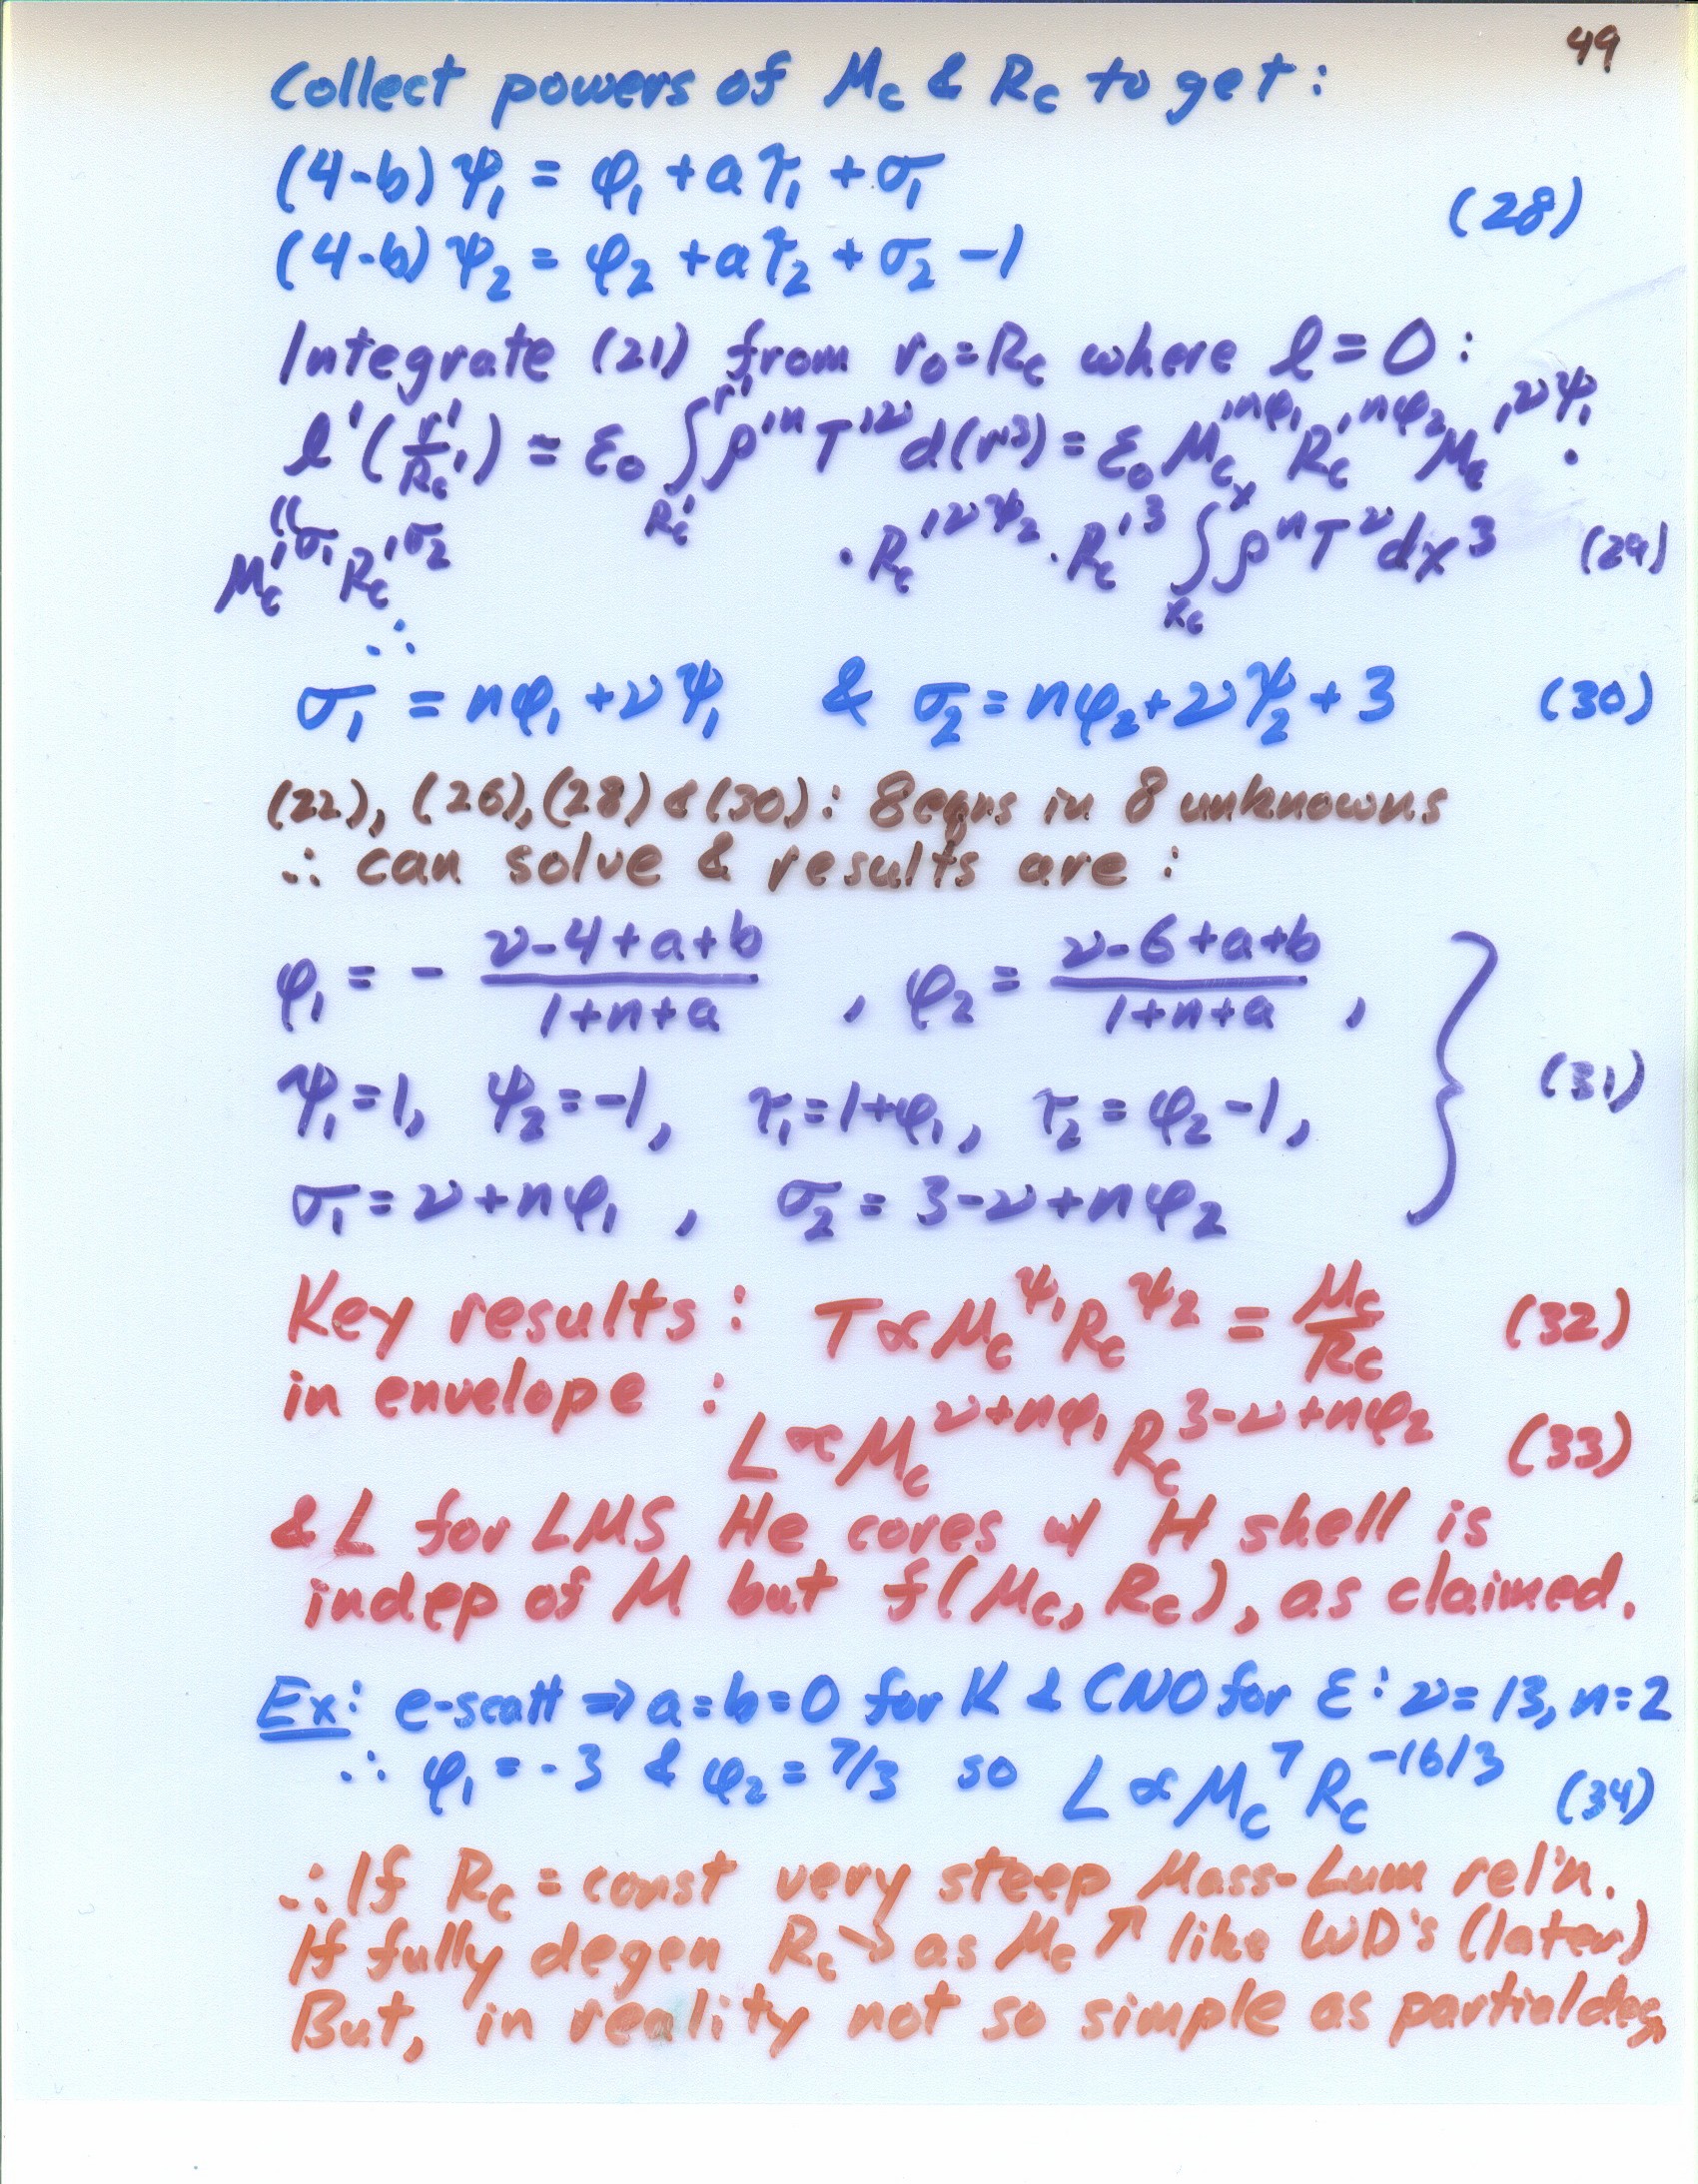 49
Collect powers of Mc & Rc to get:
(4-b)ψ₁ = φ₁ + aτ₁ + σ₁
(4-b)ψ₂ = φ₂ + aτ₂ + σ₂ - 1 (28)
Integrate (21) from r₀=Rc where l=0:
l'(r'/Rc') = ε₀ ∫_{Rc'}^{r'} ρ'ⁿ T'^ν d(r'³) = ε₀ Mc'^{nφ₁} Rc'^{nφ₂} Mc'^{νψ₁} ·
Mc'^{σ₁} Rc'^{σ₂} · Rc'^{νψ₂} · Rc'³ ∫_{xc}^{x} ρⁿ T^ν dx³ (29)
∴
σ₁ = nφ₁ + νψ₁ & σ₂ = nφ₂ + νψ₂ + 3 (30)
(22), (26), (28) & (30): 8 eqns in 8 unknowns
∴ can solve & results are:
φ₁ = - (ν-4+a+b)/(1+n+a) , φ₂ = (ν-6+a+b)/(1+n+a) ,
ψ₁=1, ψ₂=-1, τ₁=1+φ₁, τ₂=φ₂-1, (31)
σ₁=ν+nφ₁ , σ₂ = 3-ν+nφ₂
Key results: T ∝ Mc^{ψ₁} Rc^{ψ₂} = Mc/Rc (32)
in envelope: L ∝ Mc^{ν+nφ₁} Rc^{3-ν+nφ₂} (33)
& L for LMS He cores w/ H shell is
indep of M but f(Mc, Rc), as claimed.
Ex: e-scatt ⇒ a=b=0 for K & CNO for ε: ν=13, n=2
∴ φ₁=-3 & φ₂=7/3 so L ∝ Mc⁷ Rc^{-16/3} (34)
∴ If Rc = const very steep Mass-Lum rel'n.
If fully degen Rc ↘ as Mc ↗ like WD's (later)
But, in reality not so simple as partial deg.